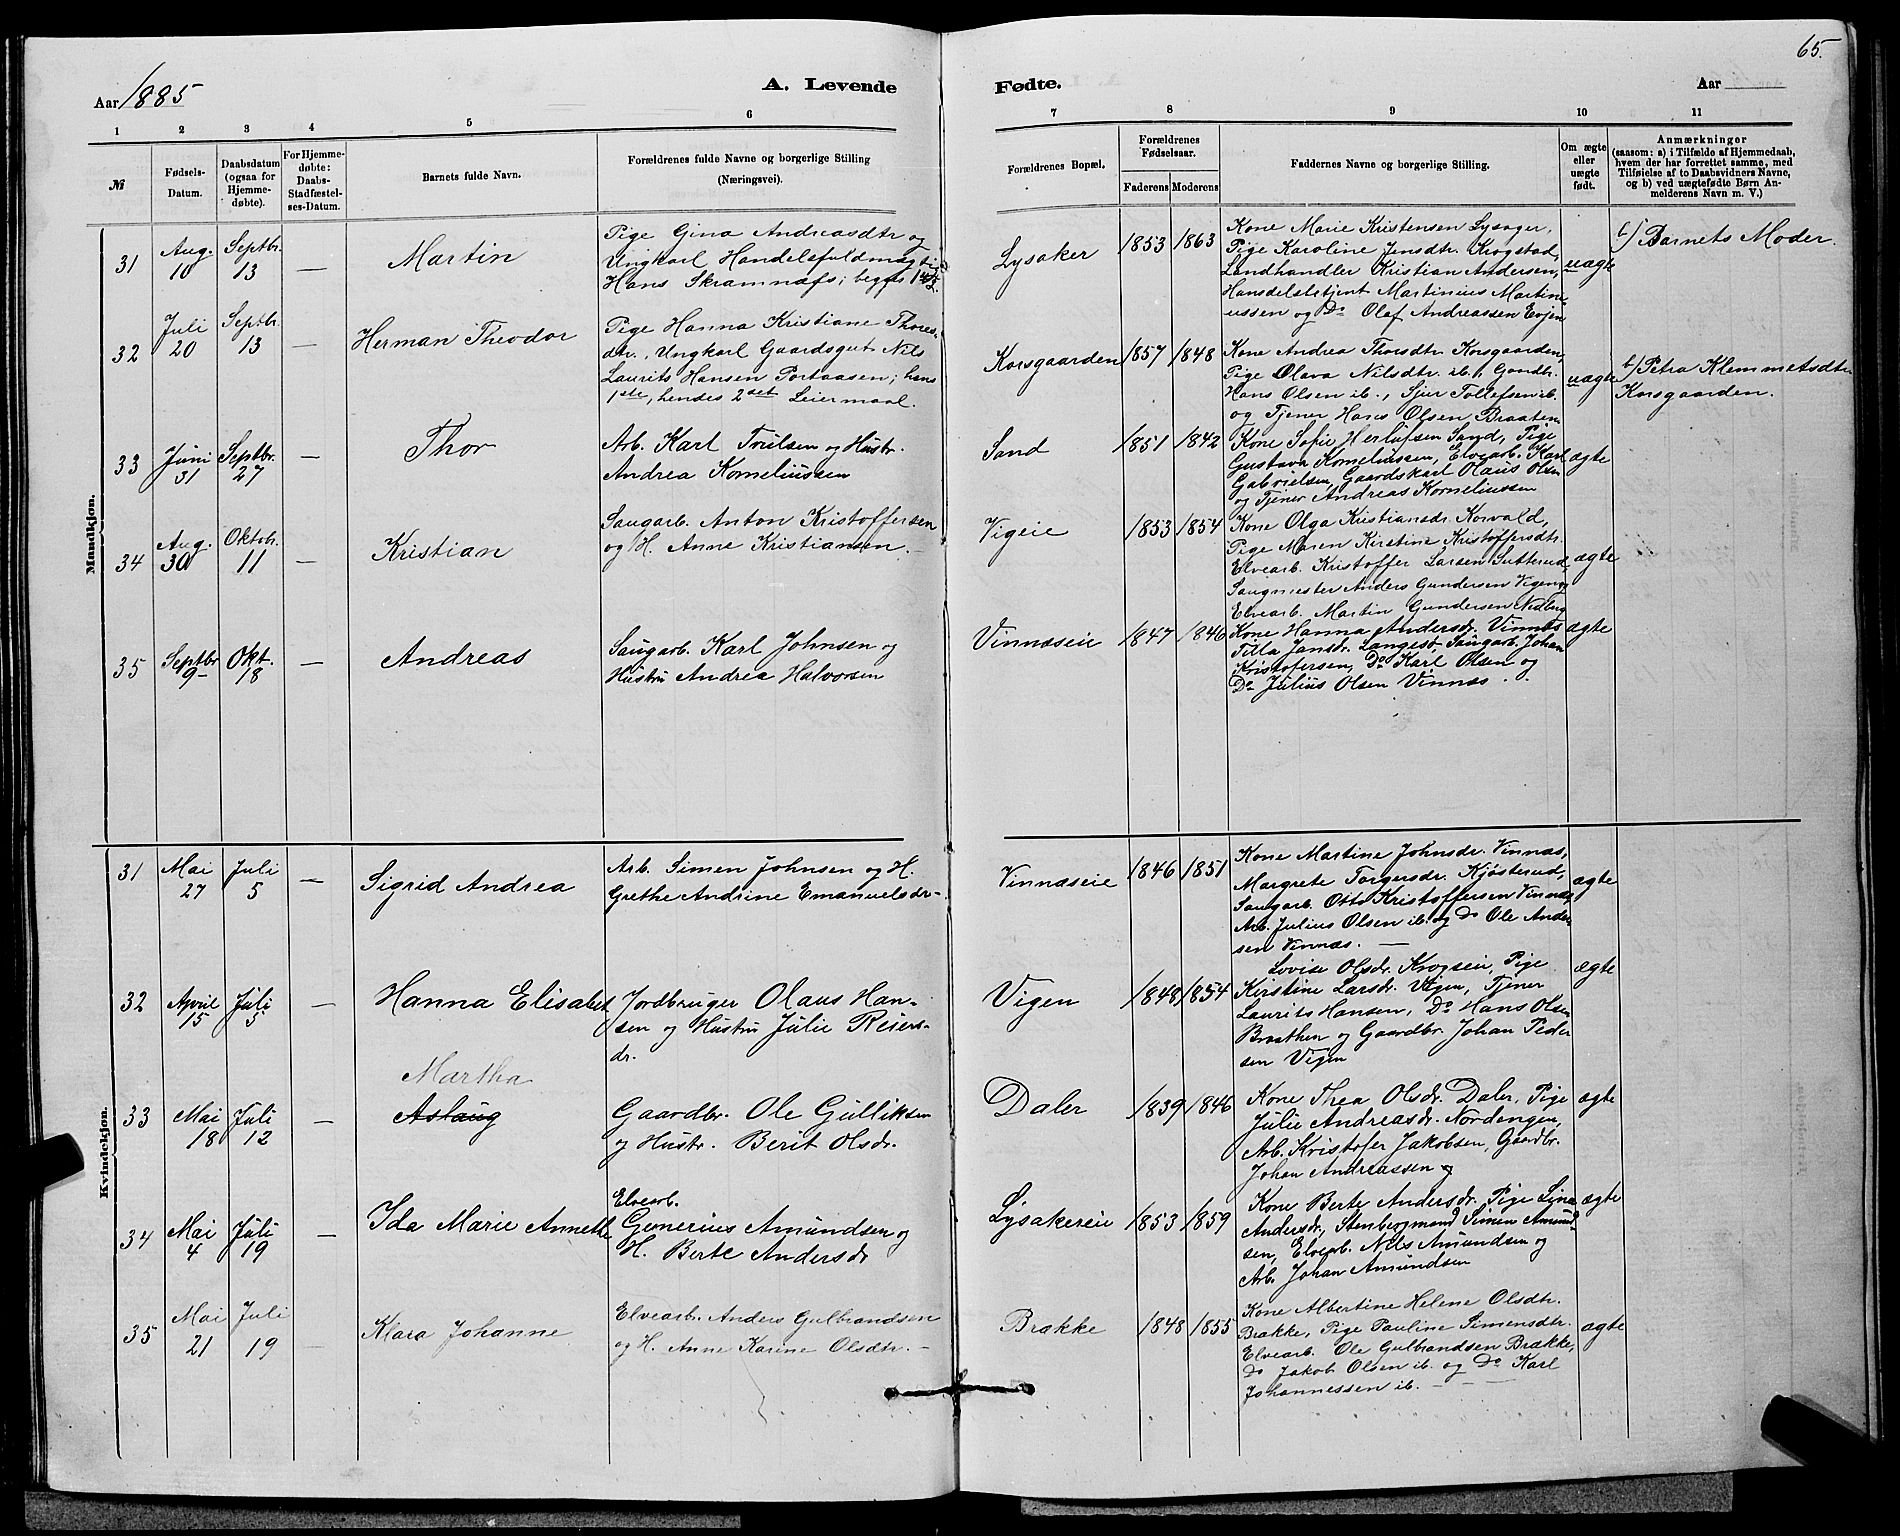 65.
Aar 1885
A. Levende
Fødte.
Aar
1 2 3 4 5 6
7 8 9 10 11
№
Fødsels-
Datum.
Daabsdatum
(ogsaa for
Hjemme-
døbte).
For Hjemme-
døbte:
Daabs-
Stadfæstel-
ses-Datum.
Barnets fulde Navn.
Forældrenes fulde Navne og borgerlige Stilling
(Næringsvei).
Forældrenes Bopæl.
Forældrenes
Fødselsaar.
Faderens Moderens
Faddernes Navne og borgerlige Stilling.
Om ægte
eller
uægte
født.
Anmærkninger
(saasom: a) i Tilfælde af Hjemmedaab,
hvem der har forrettet samme, med
Tilføielse af to Daabsvidners Navne,
og b) ved uægtefødte Børn An-
melderens Navn m. V.)
Mandkjøn.
31
Aug.
10
Septbr.
13
—
Martin
Pige Gina Andreasdtr og
Ungkarl Handelsfuldmægtig
Hans Skramnæs; begges 1ste L.
Lysaker
1853 1863
Kone Marie Kristensen Lysager,
Pige Karoline Jensdtr. Krogstad,
Landhandler Kristian Andersen,
Handelsbetjent Martinius Martin-
iussen og Do Olaf Andreassen Evjen
uægte
b/ Barnets Moder.
32
Juli
20
Septbr.
13
—
Herman Theodor
Pige Hanna Kristiane Thores-
dtr., Ungkarl Gaardsgut Nils
Laurits Hansen Portaasen; hans
1ste, hendes 2det Leiermaal.
Korsgaarden
1857 1848
Kone Andrea Thorsdtr. Korsgaarden,
Pige Olava Nilsdtr. ib., Gaardbr.
Hans Olsen ib., Sjur Tollefsen ib.
og Tjener Hans Olsen Braaten
uægte
b/ Petra Klemmetsdtr
Korsgaarden.
33
Juni
31
Septbr.
27
—
Thor
Arb. Karl Trulsen og Hustr.
Andrea Korneliussen
Sand
1851 1842
Kone Sofie Herlufsen Sand, Pige
Gustava Korneliussen, Elvearb. Karl
Gabrielsen, Gaardskarl Olaus Olsen
og Tjener Andreas Korneliussen
ægte
34
Aug.
30
Oktobr.
11
—
Kristian
Saugarb. Anton Kristoffersen
og H. Anne Kristiansen.
Vigeie
1853 1854
Kone Olga Kristiansdr. Korvald,
Pige Maren Kirstine Kristoffersdtr.
Elvearb. Kristoffer Larsen Sutterud,
Saugmester Anders Gundersen Vigen og
Elvearb. Martin Gundersen Nedberg
ægte
35
Septbr
9
Okt.
18
—
Andreas
Saugarb. Karl Johnsen og
Hustru Andrea Halvorsen
Vinnæseie
1847 1846
Kone Hanna Andersdr. Vinnæs
Tilla Jansdr. Langesd. Saugarb. Johan
Kristofersen, Do Karl Olsen og
Do Julius Olsen Vinnæs.
ægte
Kvindekjøn.
31
Mai
27
Juli
5
—
Sigrid Andrea
Arb. Simen Johnsen og H.
Grethe Andrine Emanuelsdr.
Vinnæseie
1846 1851
Kone Martine Johnsdr. Vinnæs,
Margrete Torgersdr. Kjøsterud,
Saugarb. Otto Kristoffersen Vinnæs,
Arb. Julius Olsen ib. og Do Ole Ander-
sen Vinnæs. —
ægte
32
April
15
Juli
5
—
Hanna Elisabet
Jordbruger Olaus Han-
sen og Hustru Julie Reiers-
dr.
Vigen
1848 1854
Lovise Olsdr. Krogseie, Pige
Kirstine Larsdr. Vigen, Tjener
Laurits Hansen, Do Hans Olsen
Braathen og Gaardbr. Johan Peder-
sen Vigen
ægte
33
Mai
18
Juli
12
—
Martha
Aslaug
Gaardbr. Ole Gulliksen
og Hustr. Berit Olsdr.
Daler
1839 1846
Kone Thea Olsdr. Daler, Pige
Julie Andreasdr. Nordengen,
Arb. Kristofer Jakobsen, Gaardbr.
Johan Andreassen og
ægte
34
Mai
4
Juli
19
—
Ida Marie Annethe
Elvearb.
Gunerius Amundsen og
H. Berte Andersdr
Lysakereie
1853 1859
Kone Berte Andersdr. Pige Lina
Andersdr., Stenbergmand Simen Amund-
sen, Elvearb. Nils Amundsen og
Arb. Johan Amundsen
ægte
35
Mai
21
Juli
19
—
Klara Johanne
Elvearb. Anders Gulbrandsen
og H. Anne Karine Olsdtr. —
Brække
1848 1855
Kone Albertine Helene Olsdtr.
Brække, Pige Pauline Simensdtr.
Elvearb. Ole Gulbrandsen Brække,
Do Jakob Olsen ib. og Do Karl
Johannessen ib. —
ægte